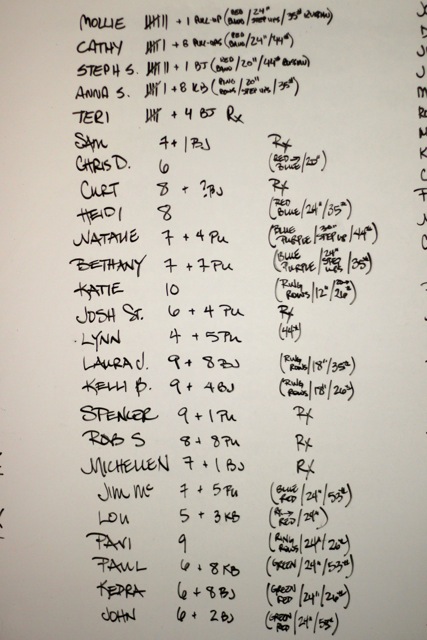 MOLLIE 𝍸 II + 1 PULL-UP (RED BAND/24" STEP UPS/35# RUSSIAN)
CATHY 𝍸 I + 8 PULL-UPS (RED BAND/24"/44#)
STEPH S. 𝍸 II + 1 BJ (RED BAND/20"/44# RUSSIAN)
ANNA S. 𝍸 I + 8 KB (RING ROWS/20" STEP UPS/35#)
TERI 𝍸 + 4 BJ Rx
SAM 7 + 1 BJ Rx
CHRIS D. 6 (RED → BLUE/20")
CURT 8 + ? BJ Rx
HEIDI 8 (RED BLUE/24"/35#)
NATALIE 7 + 4 PU (BLUE PURPLE/STEP UP/44#)
BETHANY 7 + 7 PU (BLUE PURPLE/24" STEP UPS/35#)
KATIE 10 (RING ROWS/12"/26#)
JOSH ST. 6 + 4 PU Rx
LYNN 4 + 5 PU (44#)
LAURA J. 9 + 8 BJ (RING ROWS/18"/35#)
KELLI B. 9 + 4 BJ (RING ROWS/18"/26#)
SPENCER 9 + 1 PU Rx
ROB S 8 + 8 PU Rx
MICHELLE N 7 + 1 BJ Rx
JIM MC 7 + 5 PU (BLUE RED/24"/53#)
LOU 5 + 3 KB (RX → RED/24")
PAVI 9 (RING ROWS/24"/26#)
PAUL 6 + 8 KB (GREEN/24"/53#)
KEDRA 6 + 8 BJ (GREEN RED/24"/26#)
JOHN 6 + 2 BJ (GREEN RED/24"/53#)